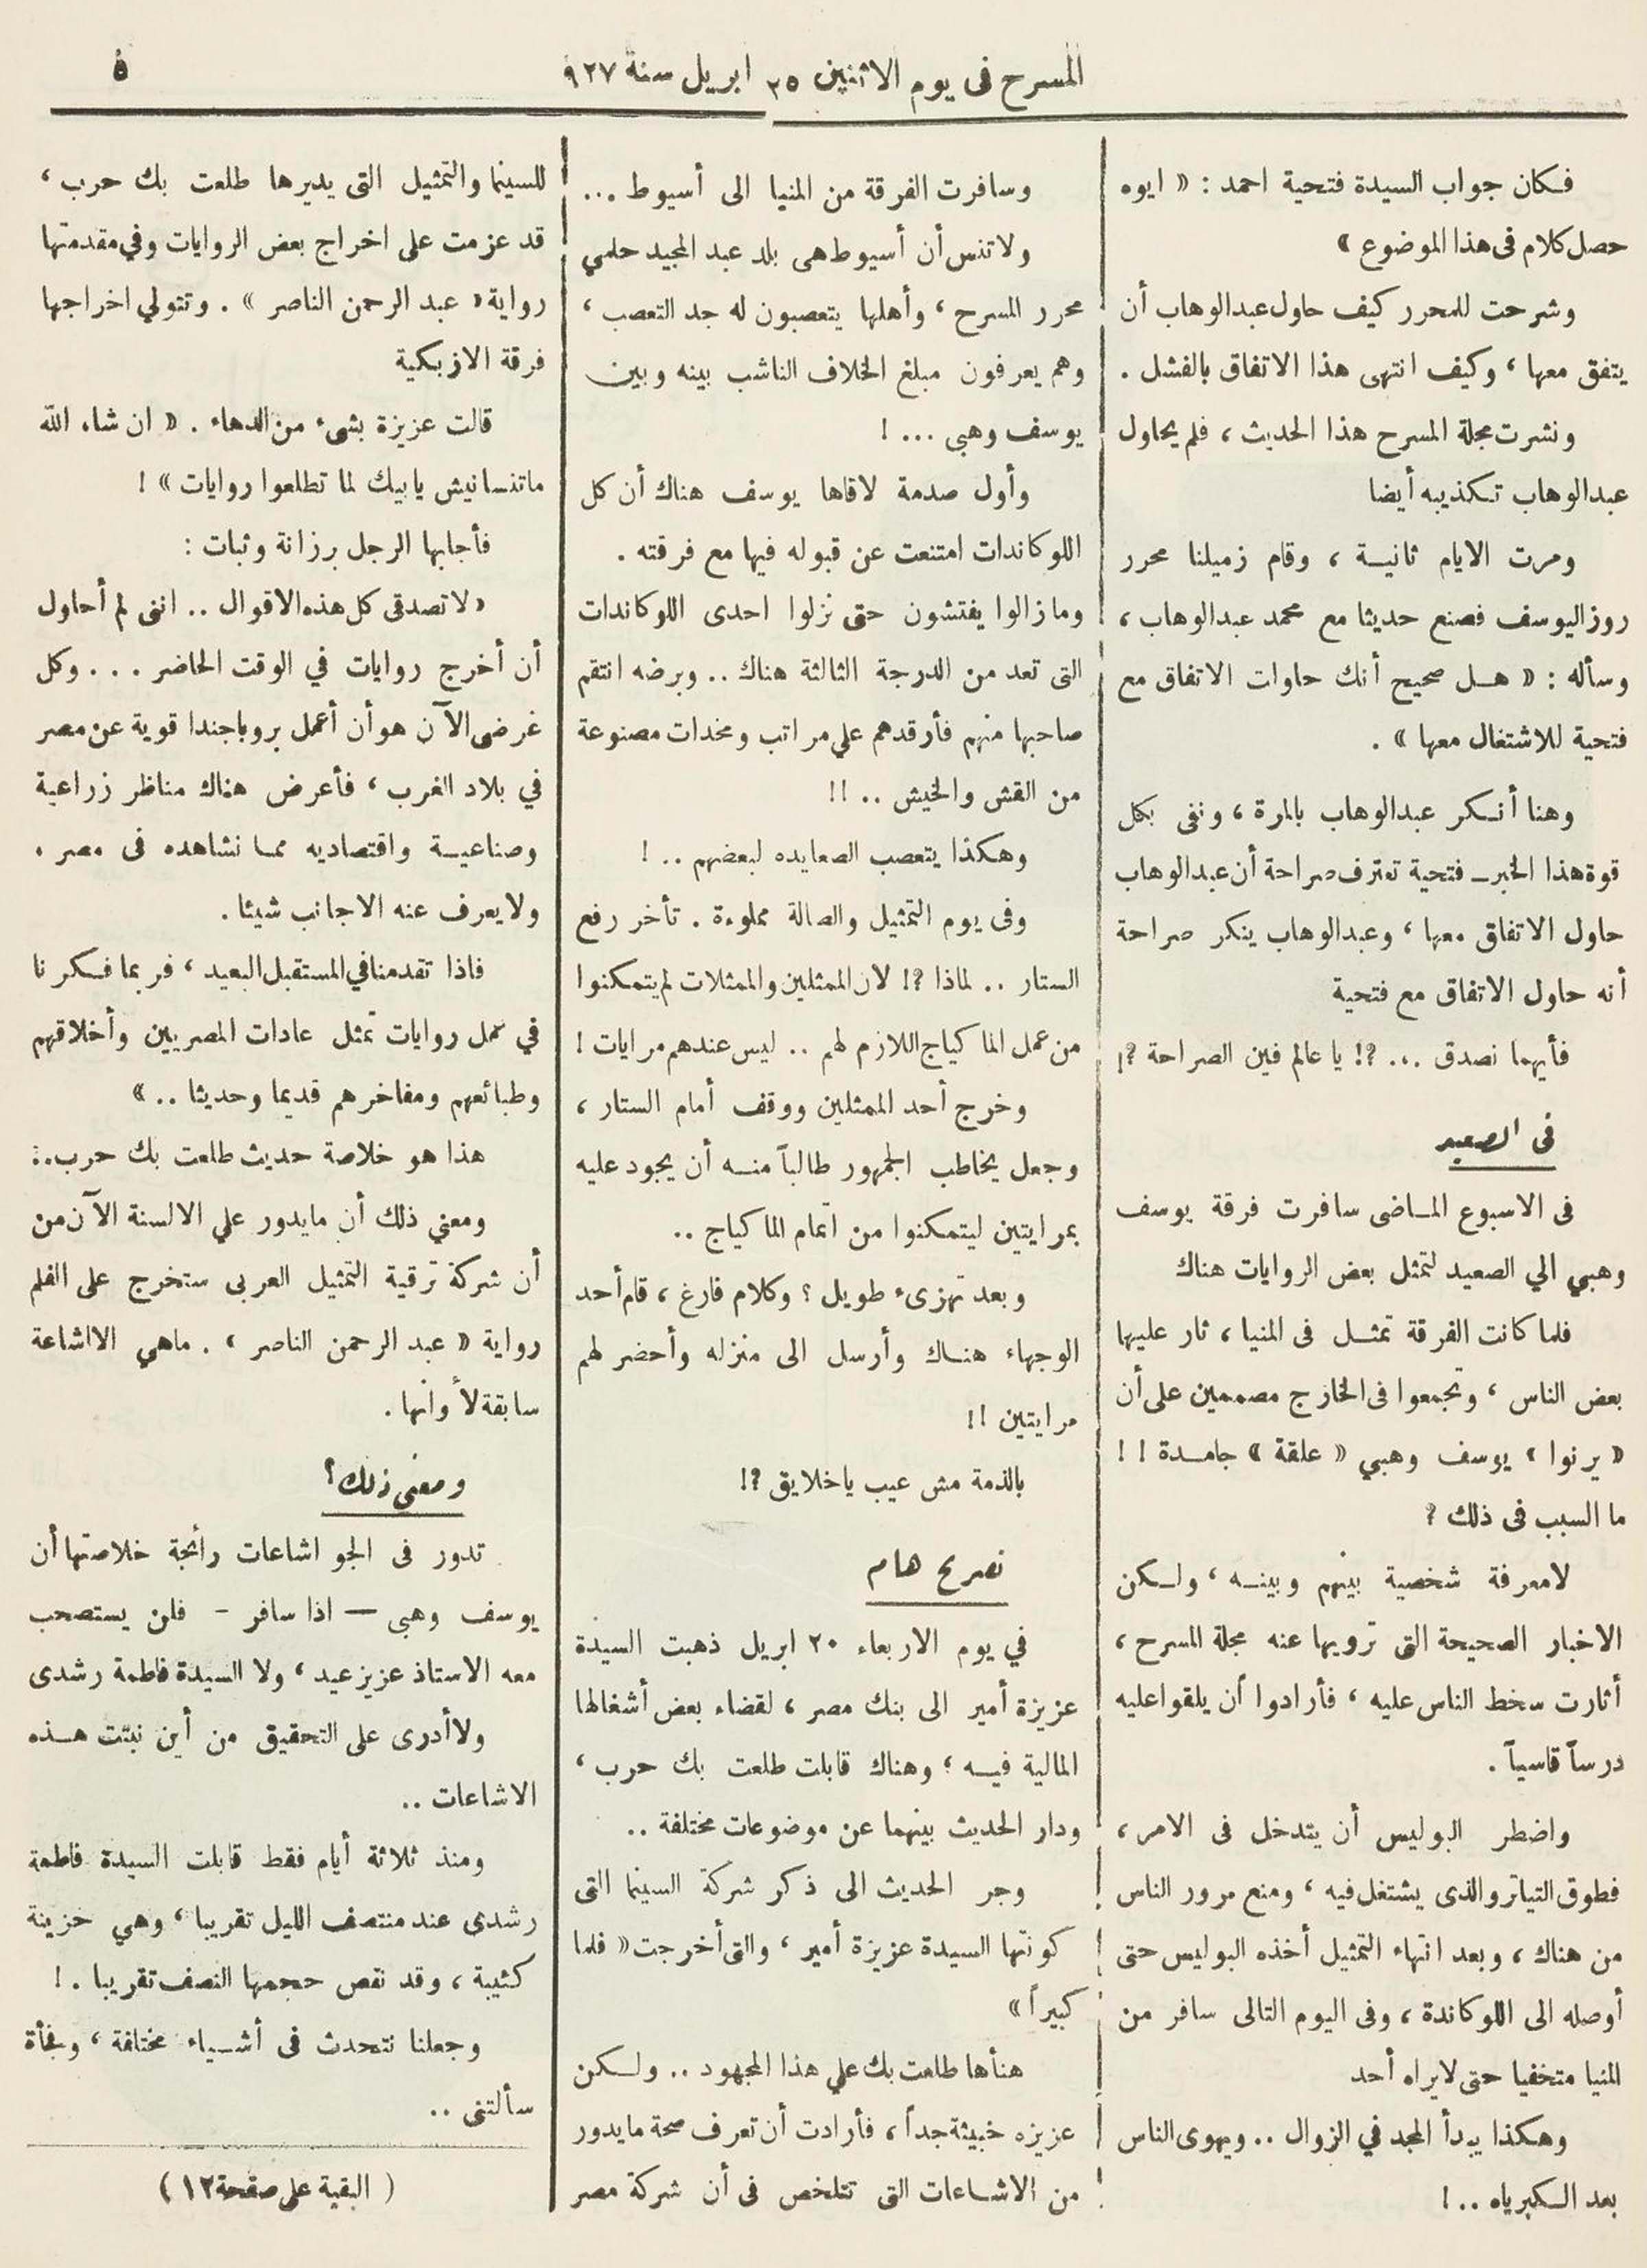 المسرح فى يوم الاثنين ٢٥ ابريل سنة ٩٢٧
٥
فكان جواب السيدة فتحية احمد : « ايوه
حصل كلام فى هذا الموضوع »
وشرحت للمحرر كيف حاول عبد الوهاب أن
يتفق معها ، وكيف انتهى هذا الاتفاق بالفشل .
ونشرت مجلة المسرح هذا الحديث ، فلم يحاول
عبد الوهاب تكذيبه أيضا
ومرت الايام ثانية ، وقام زميلنا محرر
روز اليوسف فصنع حديثا مع محمد عبد الوهاب ،
وسأله : « هل صحيح أنك حاوات الاتفاق مع
فتحية للاشتغال معها » .
وهنا أنكر عبد الوهاب بالمرة ، ونفى بكل
قوة هذا الخبر ــ فتحية تعترف صراحة أن عبد الوهاب
حاول الاتفاق معها ، وعبد الوهاب ينكر صراحة
أنه حاول الاتفاق مع فتحية
فأيهما نصدق ... ؟! يا عالم فين الصراحة ؟!
فى الصعيد
فى الاسبوع الماضى سافرت فرقة يوسف
وهبي الي الصعيد لتمثل بعض الروايات هناك
فلما كانت الفرقة تمثل فى المنيا ، ثار عليها
بعض الناس ، وتجمعوا فى الخارج مصممين على أن
« يرنوا » يوسف وهبي « علقة » جامدة ! !
ما السبب فى ذلك ؟
لا معرفة شخصية بينهم وبينه ، ولكن
الاخبار الصحيحة التى ترويها عنه مجلة المسرح ،
أثارت سخط الناس عليه ، فأرادوا أن يلقوا عليه
درساً قاسياً .
واضطر البوليس أن يتدخل فى الامر ،
فطوق التياترو الذى يشتغل فيه ، ومنع مرور الناس
من هناك ، وبعد انتهاء التمثيل أخذه البوليس حتى
أوصله الى اللوكاندة ، وفى اليوم التالى سافر من
المنيا متخفيا حتى لا يراه أحد
وهكذا يبدأ المجد في الزوال .. ويهوى الناس
بعد الكبرياء .. !
وسافرت الفرقة من المنيا الى أسيوط ...
ولا تنس أن أسيوط هى بلد عبد المجيد حلمي
محرر المسرح ، وأهلها يتعصبون له جد التعصب ،
وهم يعرفون مبلغ الخلاف الناشب بينه وبين
يوسف وهبى ... !
وأول صدمة لاقاها يوسف هناك أن كل
اللوكاندات امتنعت عن قبوله فيها مع فرقته .
وما زالوا يفتشون حتى نزلوا احدى اللوكاندات
التى تعد من الدرجة الثالثة هناك .. وبرضه انتقم
صاحبها منهم فأرقدهم علي مراتب ومخدات مصنوعة
من القش والخيش .. !!
وهكذا يتعصب الصعايده لبعضهم .. !
وفى يوم التمثيل والصالة مملوءة . تأخر رفع
الستار .. لماذا ؟! لان الممثلين والممثلات لم يتمكنوا
من عمل الماكياج اللازم لهم .. ليس عندهم مرايات !
وخرج أحد الممثلين ووقف أمام الستار ،
وجعل يخاطب الجمهور طالباً منه أن يجود عليه
بمرايتين ليتمكنوا من اتمام الماكياج ..
وبعد تهزىء طويل ؟ وكلام فارغ ، قام أحد
الوجهاء هناك وأرسل الى منزله وأحضر لهم
مرايتين !!
بالذمة مش عيب ياخلايق ؟!
تصريح هام
في يوم الاربعاء ٢٠ ابريل ذهبت السيدة
عزيزة أمير الى بنك مصر ، لقضاء بعض أشغالها
المالية فيه ؛ وهناك قابلت طلعت بك حرب ،
ودار الحديث بينهما عن موضوعات مختلفة ..
وجر الحديث الى ذكر شركة السينما التى
كونتها السيدة عزيزة أمير ، والتى أخرجت « فلما
كبيراً »
هنأها طلعت بك علي هذا المجهود .. ولكن
عزيزه خبيثة جداً ، فأرادت أن تعرف صحة ما يدور
من الاشاعات التى تتلخص فى أن شركة مصر
للسينما والتمثيل التى يديرها طلعت بك حرب ،
قد عزمت على اخراج بعض الروايات وفي مقدمتها
رواية « عبد الرحمن الناصر » . وتتولي اخراجها
فرقة الازبكية
قالت عزيزة بشىء من الدهاء . « ان شاء الله
ماتنسانيش يا بيك لما تطلعوا روايات » !
فأجابها الرجل برزانة وثبات :
« لا تصدقى كل هذه الاقوال .. اننى لم أحاول
أن أخرج روايات في الوقت الحاضر ... وكل
غرضى الآن هو أن أعمل بروباجندا قوية عن مصر
في بلاد الغرب ، فأعرض هناك مناظر زراعية
وصناعية واقتصاديه مما نشاهده فى مصر .
ولا يعرف عنه الاجانب شيئا .
فاذا تقدمنا في المستقبل البعيد ، فربما فكرنا
في عمل روايات تمثل عادات المصريين وأخلاقهم
وطبائعهم ومفاخرهم قديما وحديثا .. »
هذا هو خلاصة حديث طلعت بك حرب..:
ومعني ذلك أن مايدور علي الالسنة الآن من
أن شركة ترقية التمثيل العربى ستخرج على الفلم
رواية « عبد الرحمن الناصر » . ماهي الا اشاعة
سابقة لأوانها .
ومعنى ذلك ؟
تدور فى الجو اشاعات رائجة خلاصتها أن
يوسف وهبى — اذا سافر - فلن يستصحب
معه الاستاذ عزيز عيد ، ولا السيدة فاطمة رشدى
ولا أدرى على التحقيق من أين نبتت هذه
الاشاعات ..
ومنذ ثلاثة أيام فقط قابلت السيدة فاطمة
رشدى عند منتصف الليل تقريبا ، وهي حزينة
كئيبة ، وقد نقص حجمها النصف تقريبا . !
وجعلنا نتحدث فى أشياء مختلفة ، وفجأة
سألتنى ..
( البقية على صفحة ١٢ )